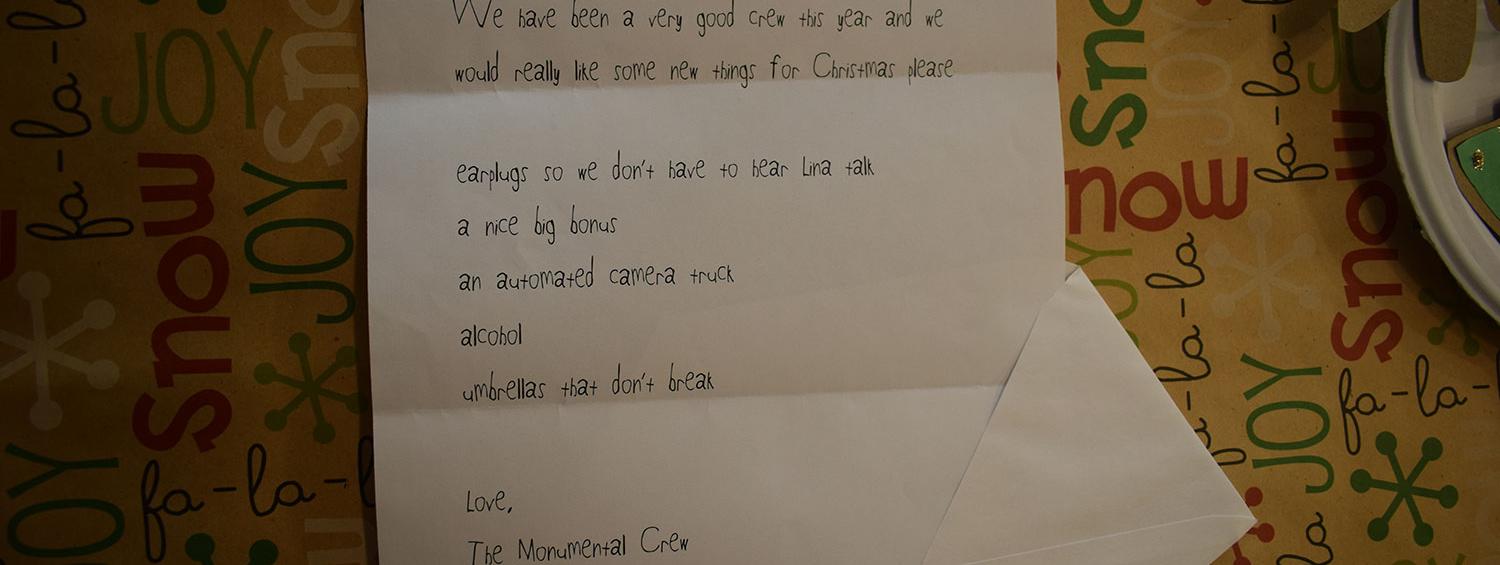 We have been a very good crew this year and we
would really like some new things for Christmas please
earplugs so we don't have to hear Lina talk
a nice big bonus
an automated camera truck
alcohol
umbrellas that don't break
Love,
The Monumental Crew
fa-la-
JOY
snow
JOY
snow
JOY
fa-la-
snow
snow
JOY
fa-la-
fa-la-la
JOY
snow
fa-la-
la